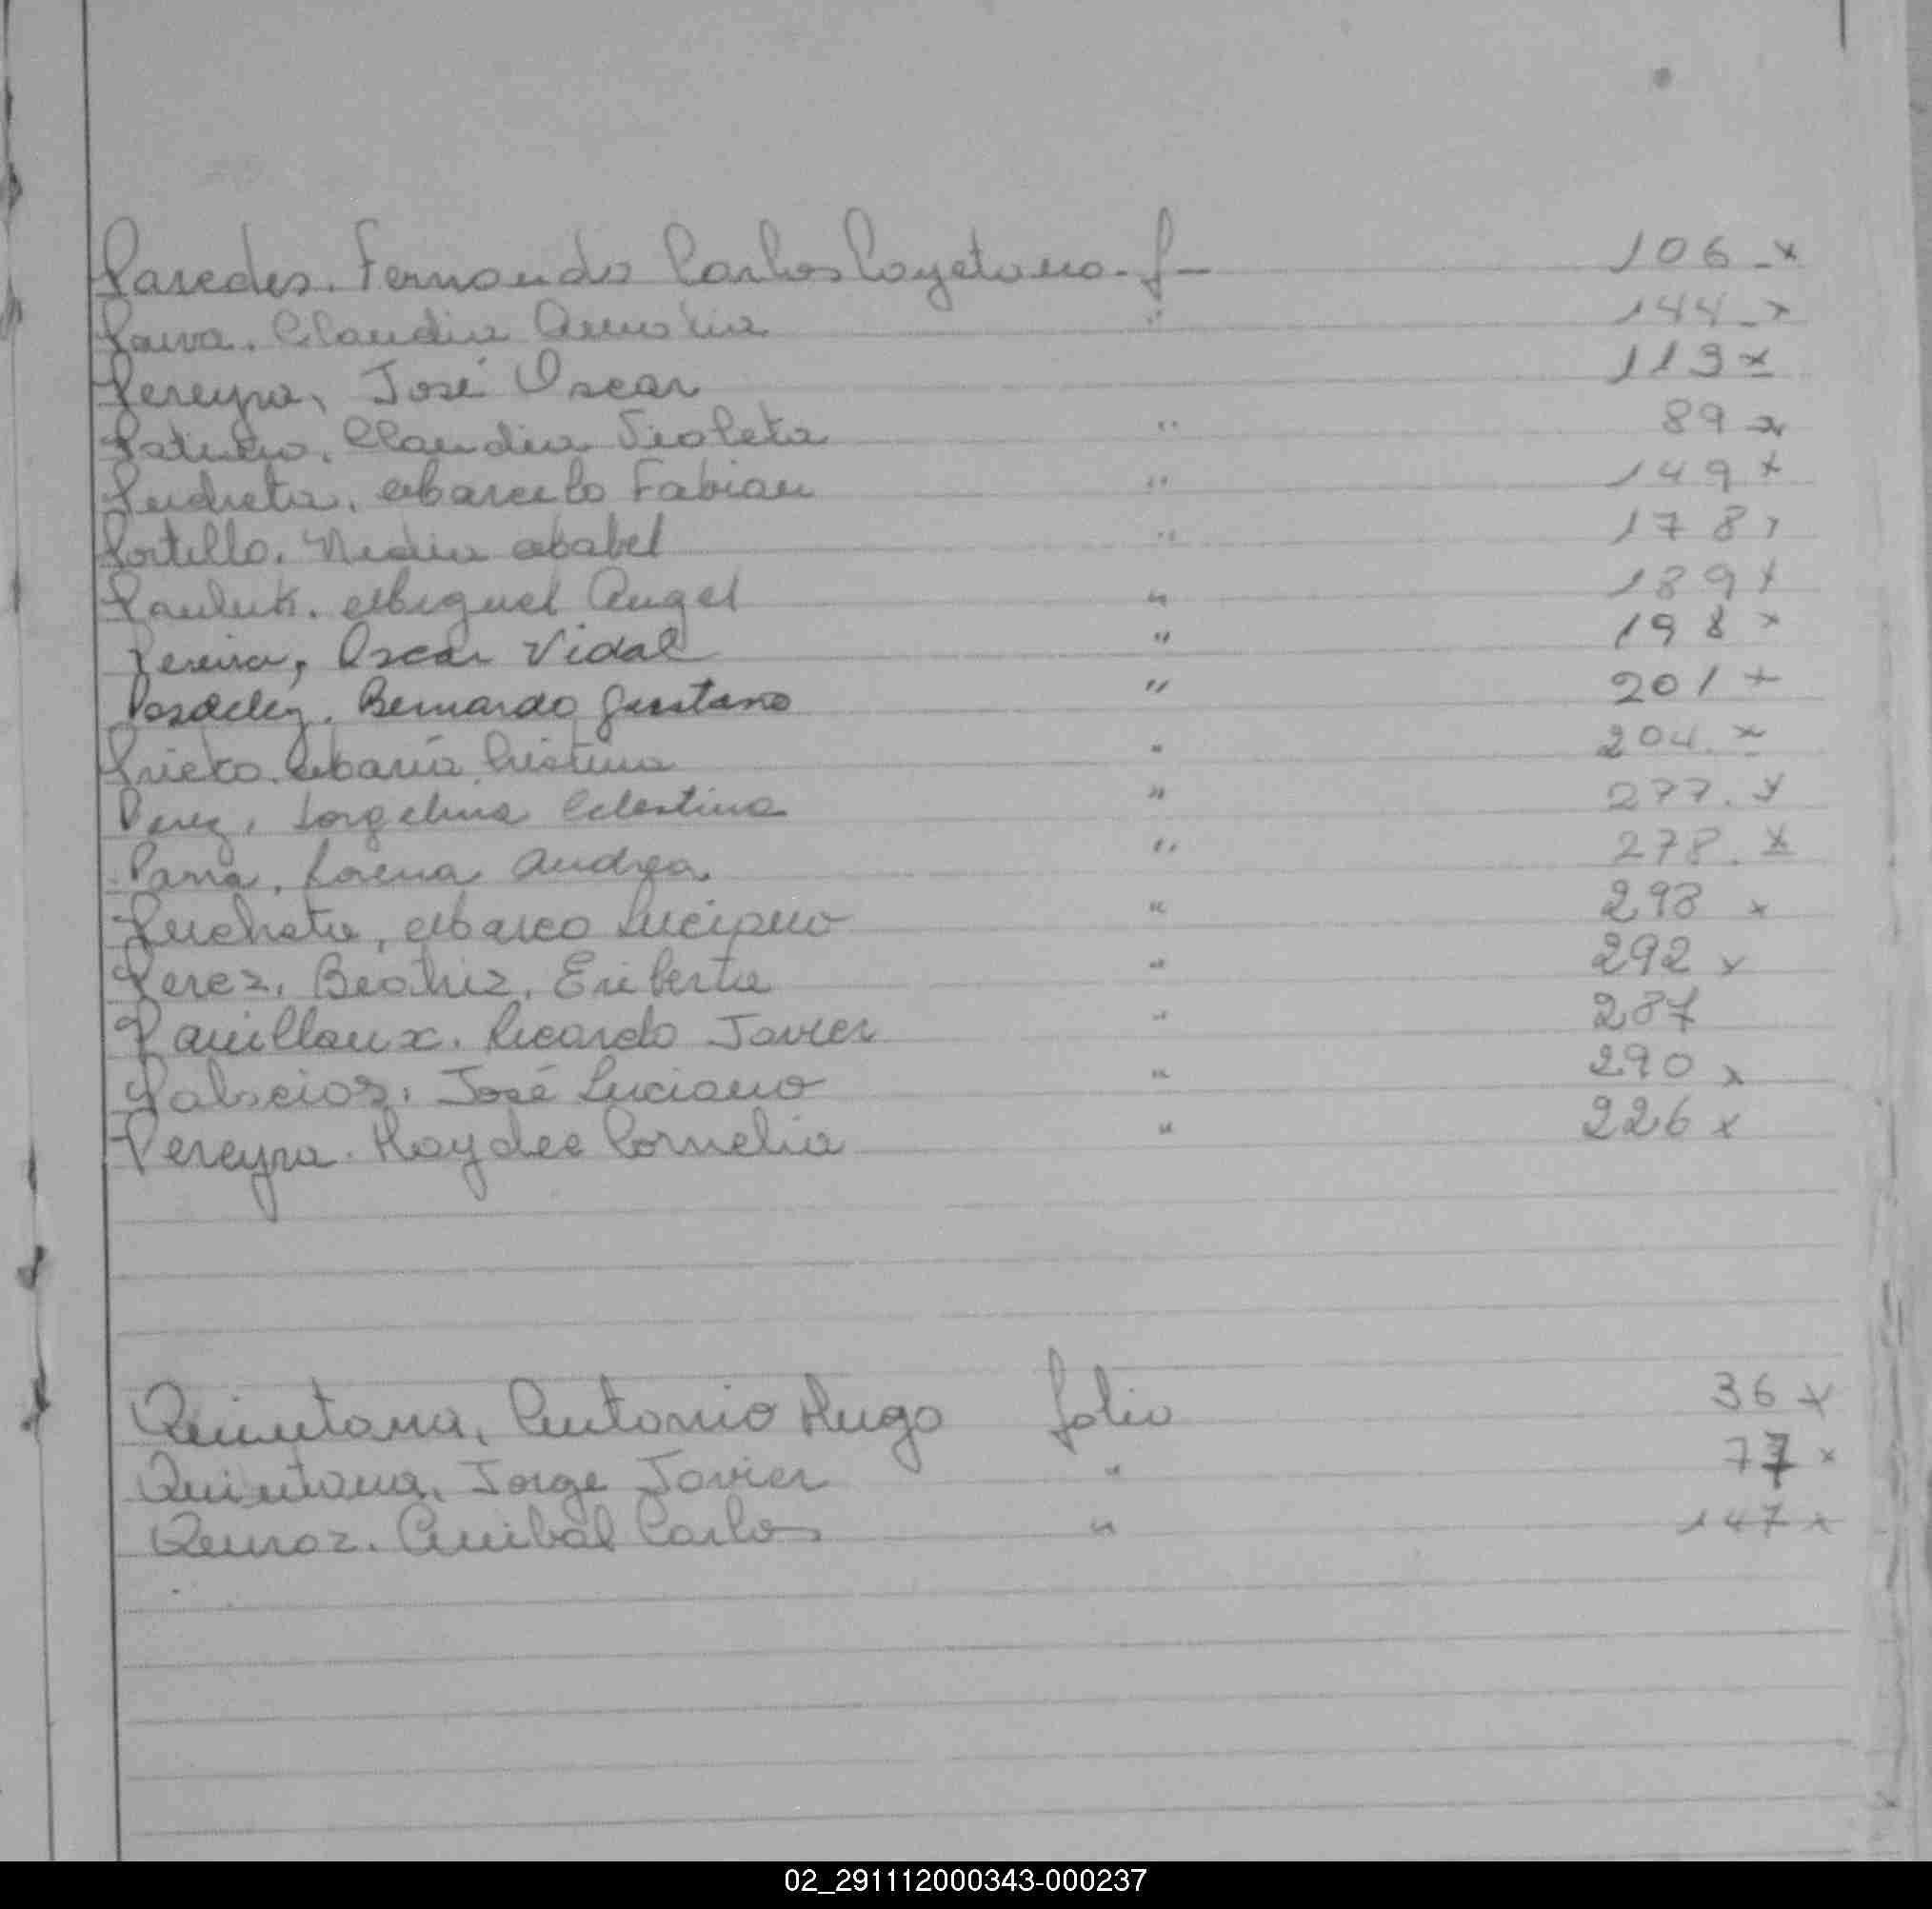 Paredes. Fernando Carlos Cayetano. f- 106 - x
Paiva. Claudia " 144 - x
Pereyra, José Oscar 113 x
Claudia Violeta " 89 x
Marcelo Fabian " 149 x
Portillo. Mabel " 178 x
Pauluk. Miguel Angel " 189 x
Pereira, Oscar Vidal " 198 x
Bernardo Gustavo " 201 x
Prieto. Maria Cristina " 204. x
Perez, Jorgelina Celestina " 277. x
Parra, Lorena Andrea. " 278. x
Marco Luciano " 298 x
Perez, Beatriz, Eriberta " 292 x
Ricardo Javier " 287
Palacios, José Luciano " 290 x
Pereyra. Haydee Cornelia " 226 x
Quintana, Antonio Hugo folio 36 x
Quintana, Jorge Javier " 77 x
Anibal Carlos " 147 x
02_291112000343-000237